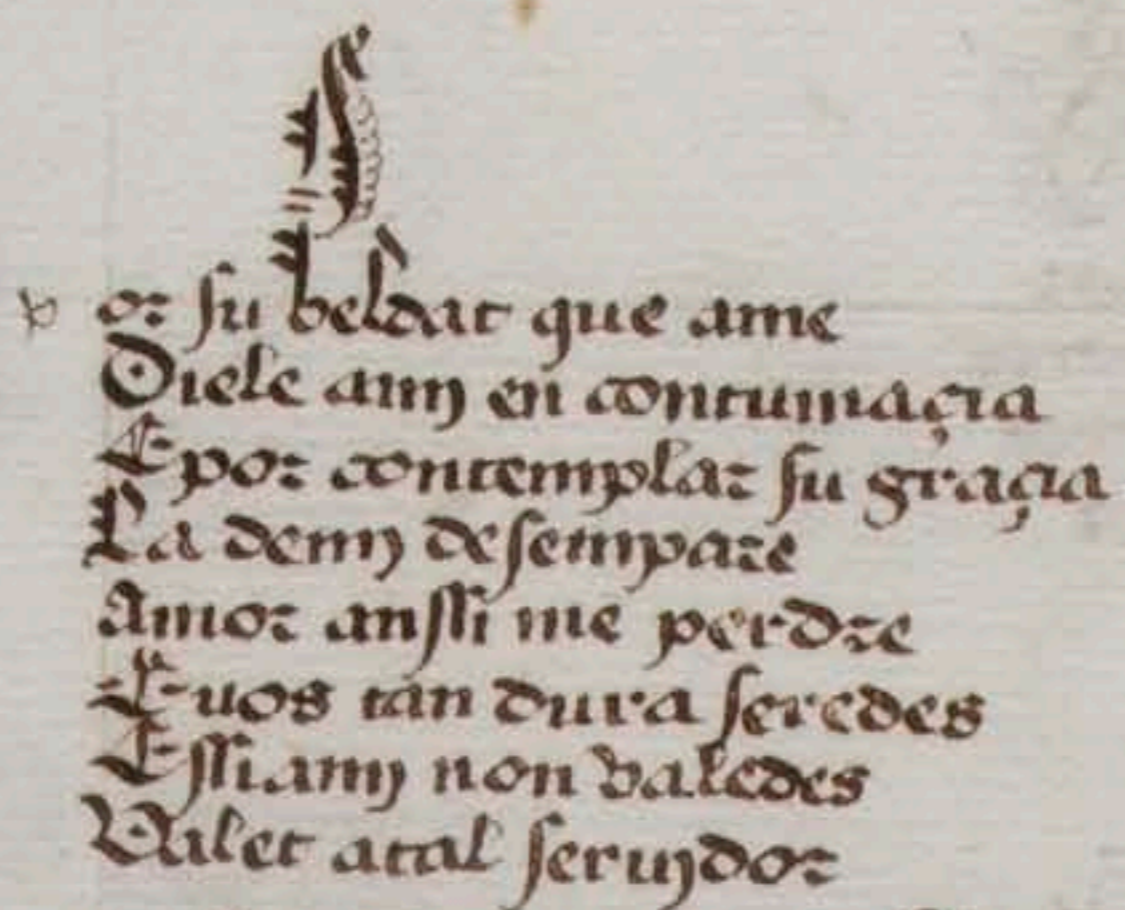 or su beldat que ame
Diele amj en contumaçia
E por contemplar su graçia
La demj desempare
Amor anssi me perdre
E uos tan dura seredes
E ssi amj non valedes
Valet atal serujdor